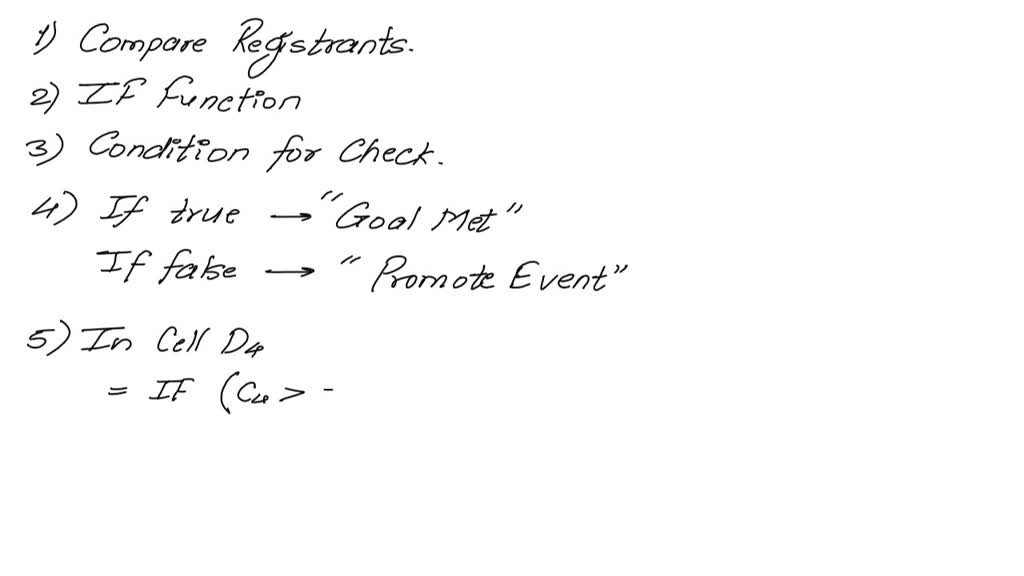 1) Compare Regstrants.
2) IF Function
3) Condition for Check.
4) If true → "Goal Met"
If false → "Promote Event"
5) In Cell D4
= IF (C4 > -